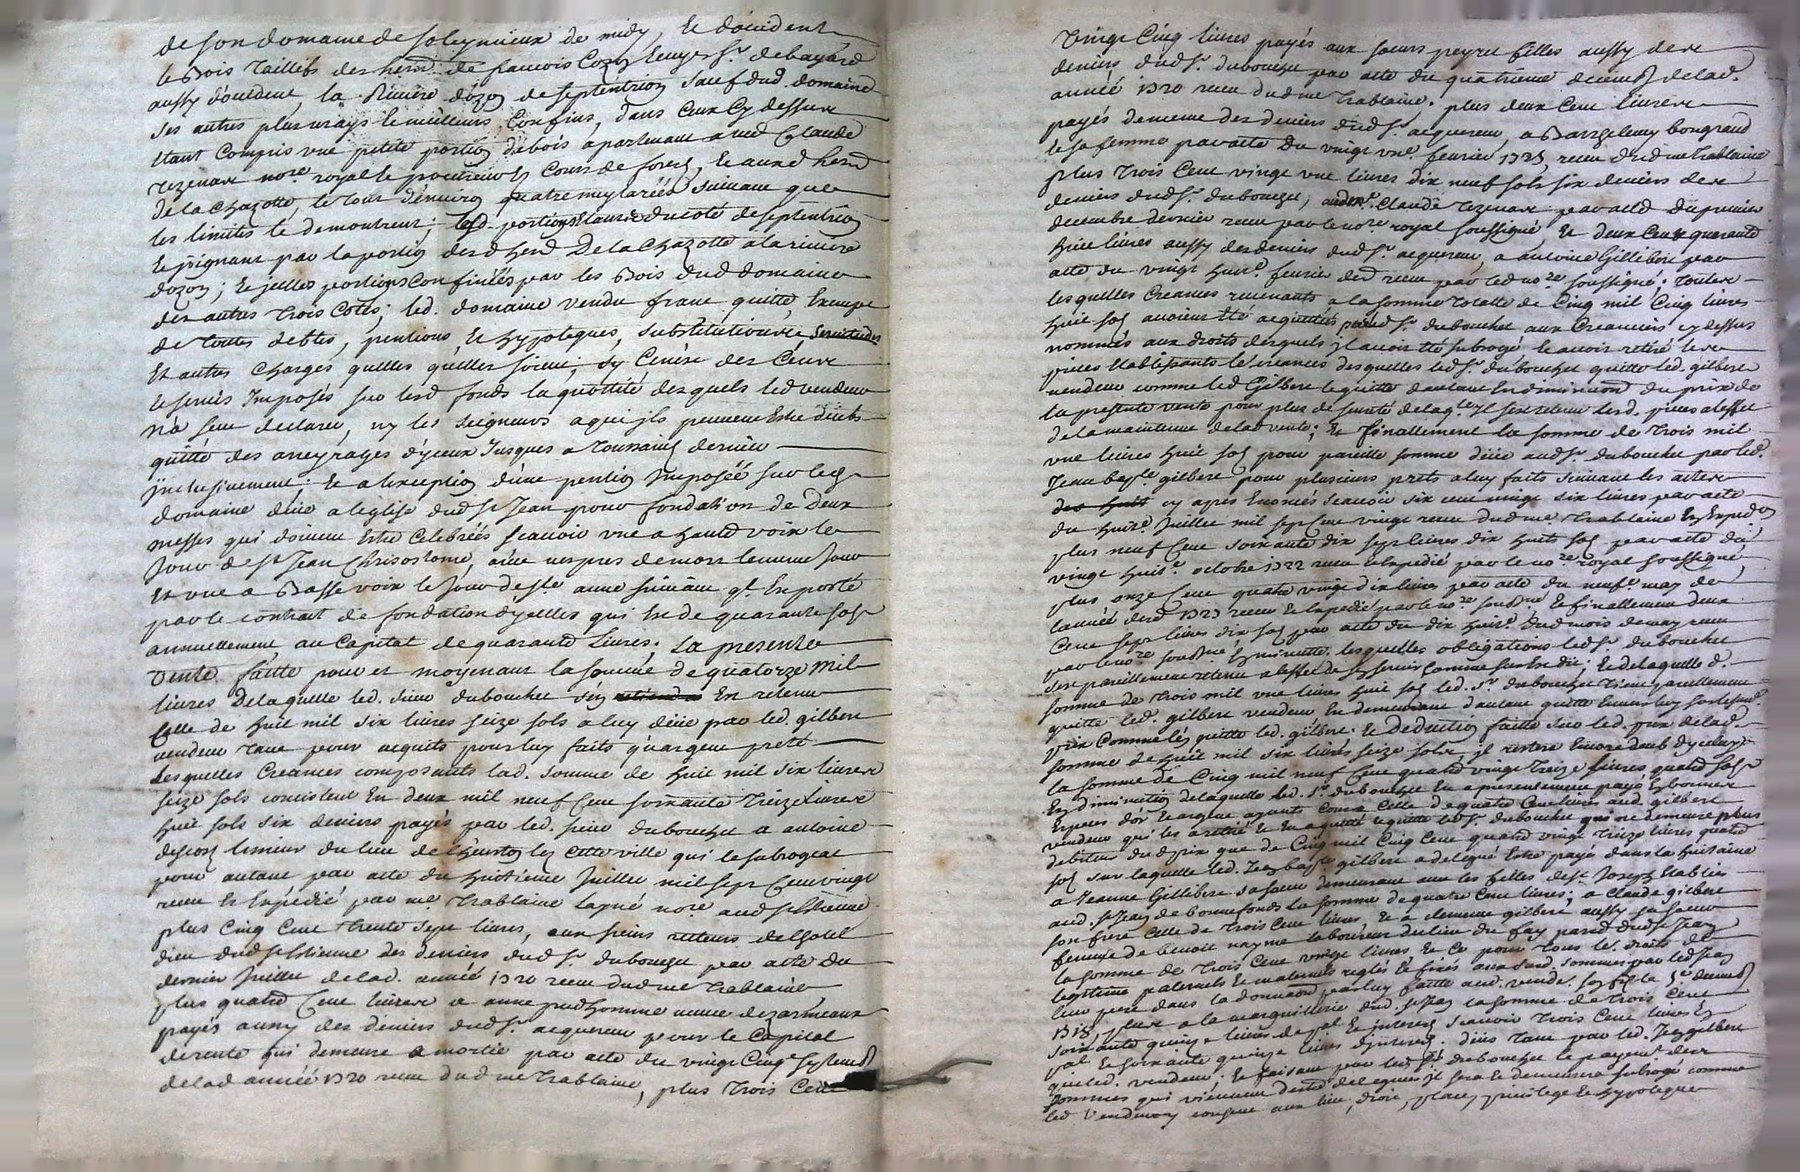 de son domaine de soleymieux de midy, et d'occident
le Bois Taillifs des her. de francois escuyer Sr. debayard
aussy d'occident, la Riviere d'ozon de septentrion sauf dud. domaine
ses autres plus vrays et meilleurs Confins, dans Ceux Cy dessus
etant Compris une petite portion de bois apartenant a me Claude
tezenas nore. royal et procureur Es Cours de forez, et aux d. her.
de la Chazotte le tout d'environ quatre meytarées suivant que
les limites le demontrent; lesd. portions du coté de septentrion
Et joignant par la portion desd. her. De la Chazotte a la riviere
dozon; et jcelles portions Confinées par les Bois dud. domaine
des autres Trois Cotés; led. domaine vendu franc quitte, Exempt
de Toutes debtes, pentions, et hypoteques, substitutions servitudes
Et autres Charges quelles quelles soient, sy Ce n'est des Cens
et servis Imposés sur lesd. fonds la quottité desquels led. vendeur
n'a sceu declarer, ny les seigneurs a qui jls peuvent Estre deubs
quitte des arreyrages d'yceux Jusques a Toussaint dernier
jnclusivement; et a l'exception d'une pention Imposée sur led.
domaine düe a leglise dud. St. Jean pour fondation de Deux
messes qui doivent Estre Celebrées scavoir une a haute voix le
Jour de St. Jean Chrisostome, avec vespres de mort le meme Jour
Et une a Basse voix le Jour de ste. anne suivant qt. Est porté
par le contrat de fondation d'ycelles qui Est de quarante sols
annuellement, au Capital de quarante Livres. La presente
vente faitte pour et moyenant la somme de quatorze Mil
livres De laquelle led. sieur dubouchet s'en En retenu
Celle de huit mil six livres seize sols a luy düe par led. gilbert
vendeur tant pour acquits pour luy faits qu'argent preté
Lesquelles Creances composants lad. somme de huit mil six livres
seize sols consistent En deux mil neuf Cent soixante Treize Livres
huit sols six deniers payés par led. sieur dubouchet a antoine
limeur du lieu de lheurton lez cette ville qui le subrogeat
pour autant par acte du huitieme Juillet mil sept Cent vingt
receu Et Expedié par me Trablaine layné nore. aud. St Estienne
plus Cinq Cent trente sept livres, aux sieurs recteurs de lhotel
dieu dud. St Estienne des deniers dud. Sr. dubouchet par acte du
dernier Juillet de lad. année 1720 receu dud. me Trablaine
plus quatre Cent livres a anne prudhomme veuve
payés aussy des deniers dud. Sr. acquereur pour le Capital
de rente qui demeure amortie par acte du vingt Cinqe. septemb.
de lad. année 1720 receu dud. me Trablaine, plus Trois Cent
Vingt Cinq livres payés aux soeurs peyret filles aussy des
deniers dud. Sr. dubouchet par acte du quatrieme decemb. de lad.
année 1720 receu dud. me Trablaine, plus deux Cent livres
payés de meme des deniers dud. Sr. acquereur, a Barthelemy bongrand
et sa femme par acte du vingt une. fevrier 1721, receu dud. me Trablaine
plus Trois Cent vingt une livres dix neuf sols six deniers des
deniers dud. Sr. dubouchet, aud. me. Claude Tezenas par acte du premier
decembre dernier receu par le nore. royal soussigné, et deux Cent quarante
huit livres aussy des deniers dud. Sr. acquereur, a antoine Gillibert par
acte du vingt huite. fevrier der receu par led. nore. soussigné; Toutes
lesquelles Creances revenants a la somme Totalle de Cinq mil Cinq livres
huit sols avoient été acquittées par led. Sr. dubouchet aux Creanciers cy dessus
nommés aux droits desquels jl avoit été subrogé et avoit retiré les
pieces Etablissants les creances desquelles led. Sr. dubouchet quitte led. gilbert
vendeur comme led. Gilbert le quitte d'autant En diminution du prix de
la presente vente pour plus de sureté de laqle. Jl s'est retenu lesd. pieces a leffet
de la maintenue de lad. vente; Et finallement la somme de Trois mil
une livres huit sols pour pareille somme düe aud. Sr. dubouchet par led.
Jean bapte. gilbert pour plusieurs prets a luy faits suivant les actes
cy apres Enoncés scavoir six cent vingt six livres par acte
du huite. Juillet mil sept Cent vingt receu dud. me. Trablaine
plus neuf Cent soixante dix sept livres dix huit sols par acte du
vingt huite. octobre 1722 receu et Expedié par le nore. royal soussigné
plus onze Cent quatre vingt dix livres par acte du neufe. may de
lannée der 1723 receu Et Expedié par le nore. sousigné, Et finallement deux
Cent sept livres dix sols par acte du dix huite. dud. mois de may receu
par le nore. sousigné En minutte, lesquelles obligations led. Sr. dubouchet
s'est pareillement retenu a leffet de s'en servir comme sus Est dit; Et de laquelle d.
somme de Trois mil une livres huit sols led. Sr. dubouchet Tient pareillement
quitte led. gilbert vendeur En demeurant d'autant quitte Envers luy sur led.
prix Comme l'en quitte led. gilbert. Et Deduction faitte sur led. prix de lad.
somme de huit mil six livres seize sols, jl restera Encore deub d'yceluy
la somme de Cinq mil neuf Cent quatre vingt Treize livres quatre sols
En diminution de laquelle led. Sr. dubouchet En a presentement payé En bonnes
Especes d'or et argent ayants cours Celle de quatre Cent livres aud. gilbert
vendeur qui les a retiré et En a quitté et quitte led. Sr. dubouchet qui ne demeure plus
debiteur dud. prix que de Cinq mil Cinq Cent quatre vingt Treize livres quatre
sols sur laquelle led. Jean bapte gilbert a delegué Estre payé dans la huitaine
a Jeanne Gillibert sa soeur demeurant avec les filles de St. Joseph Etablies
aud. St. Jean de bonnefonds la somme de quatre Cent livres; a Claude gilbert
son frere Celle de Trois Cent livres, et a clemence gilbert aussy sa soeur
femme de benoit nayme laboureur du lieu du fay parre. dud. St Jean
la somme de Trois Cent vingt livres Et Ce pour Tous les droits de
legitime paternels et maternels reglés et fixés aux susd. sommes par led. Jean
leur pere dans la donnaon par luy faitte aud. vende. son fils le 5e decemb.
1718, plus a la marguillerie dud. St Jean la somme de Trois Cent
soixante quinze livres de pal. Et jnterets scavoir Trois Cent livres En
pal. et soixante quinze livres d'jnterets. dües Tant par led. Jean gilbert
que led. vendeur; Et faisant par led. Sr dubouchet le payemt. des
sommes qui viennent d'estre deleguées jl sera et demeurera subrogé comme
led. vendeur consent aux lieu, droit, place, privilege Et hypoteque